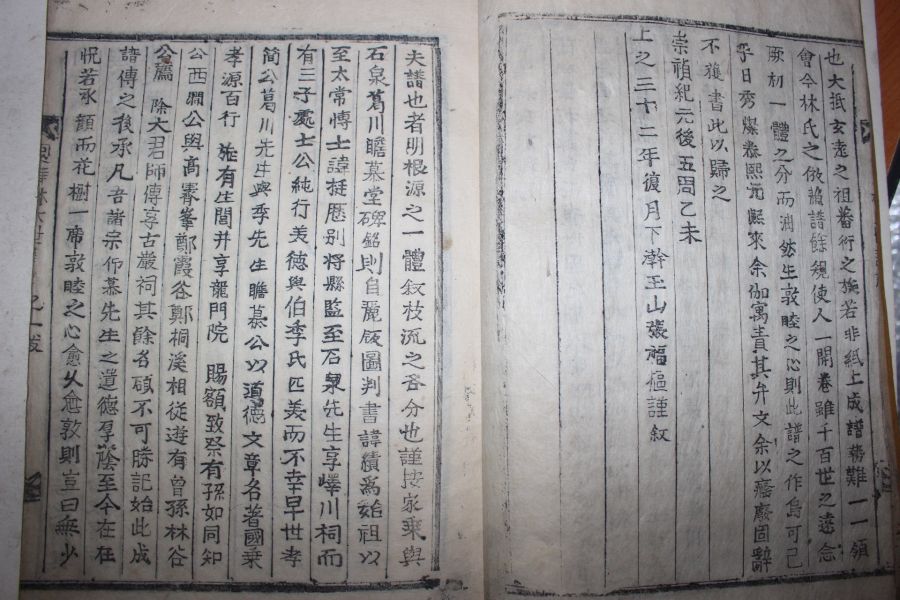 也大抵玄遠之祖蕃衍之族若非紙上成譜勢難一一領
會今林氏之倣蘇譜餘規使人一開卷雖千百世之遠念
厥初一體之分而油然生敦睦之心則此譜之作烏可已
乎日秀燦泰熙元熙來余伽寓責其弁文余以癃廢固辭
不獲書此以歸之
崇禎紀元後五周乙未
上之三十二年復月下澣玉山張福樞謹叙
夫譜也者明根源之一體叙枝流之各分也謹按家乘與
石泉葛川瞻慕堂碑銘則自麗版圖判書諱績爲始祖以
至太常博士諱挺歷別將縣監至石泉先生享嶧川祠而
有三子處士公純行美德與伯季氏匹美而不幸早世孝
簡公葛川先生與季先生瞻慕公以道德文章名著國乘
孝源百行旌有生閭并享龍門院 賜額致祭有孫如同知
公西澗公與高霽峯鄭霞谷鄭桐溪相從遊有曾孫林谷
公薦 除大君師傅享古巖祠其餘名碩不可勝記始此成
譜傳之後承凡吾諸宗仰慕先生之遺德孚蔭至今在在
怳若承顔而花樹一席敦睦之心愈久愈敦則豈曰無少